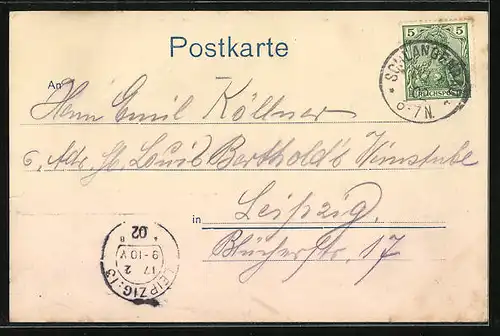 Postkarte
5 5
REICHSPOST
* SCHLANGENB
6-7N. *
An
Herrn Emil Köllner
Louis Berthold's Weinstube
in
Leipzig.
Blücherstr. 17
LEIPZIG 13
17 2
9-10 V
02